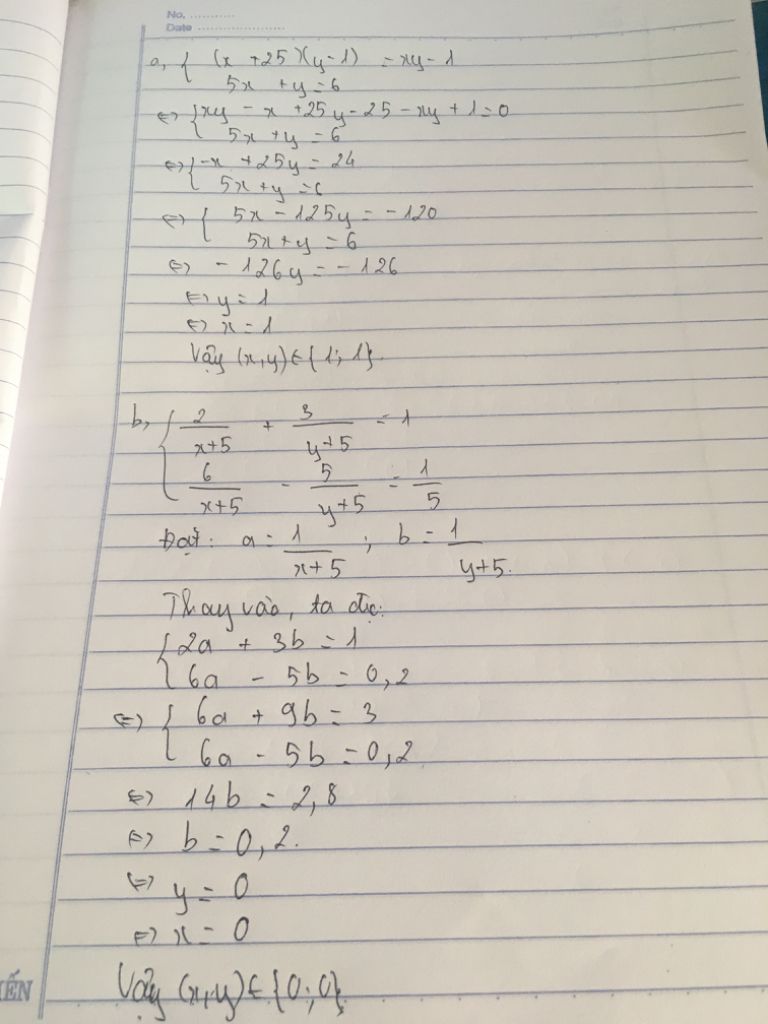 No. ............
Date ........................
a, { (x + 25)(y - 1) = xy - 1
5x + y = 6
⇔ { xy - x + 25y - 25 - xy + 1 = 0
5x + y = 6
⇔ { -x + 25y = 24
5x + y = 6
⇔ { 5x - 125y = -120
5x + y = 6
⇔ - 126y = - 126
⇔ y = 1
⇔ x = 1
Vậy (x,y) ∈ {1; 1}.
b, { 2/(x+5) + 3/(y+5) = 1
6/(x+5) - 5/(y+5) = 1/5
Đặt: a = 1/(x+5) ; b = 1/(y+5).
Thay vào, ta đc:
{ 2a + 3b = 1
6a - 5b = 0,2
⇔ { 6a + 9b = 3
6a - 5b = 0,2
⇔ 14b = 2,8
⇔ b = 0,2.
⇔ y = 0
⇔ x = 0
Vậy (x,y) ∈ {0; 0}.